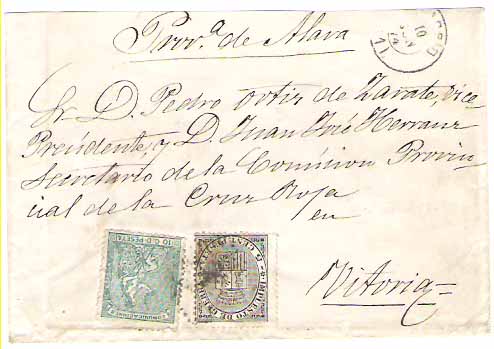 Prov.ª de Alava
Sr. D. Pedro Ortiz de Zarate, Vice
Presidente, y D. Juan José Herranz
Secretario de la Comision Provin
cial de la Cruz Roja
en
Vitoria
10
JUN
74
(1)
10 C. D PESETA
COMUNICACIONES
5 CENT. PESETA
IMPUESTO DE GUERRA